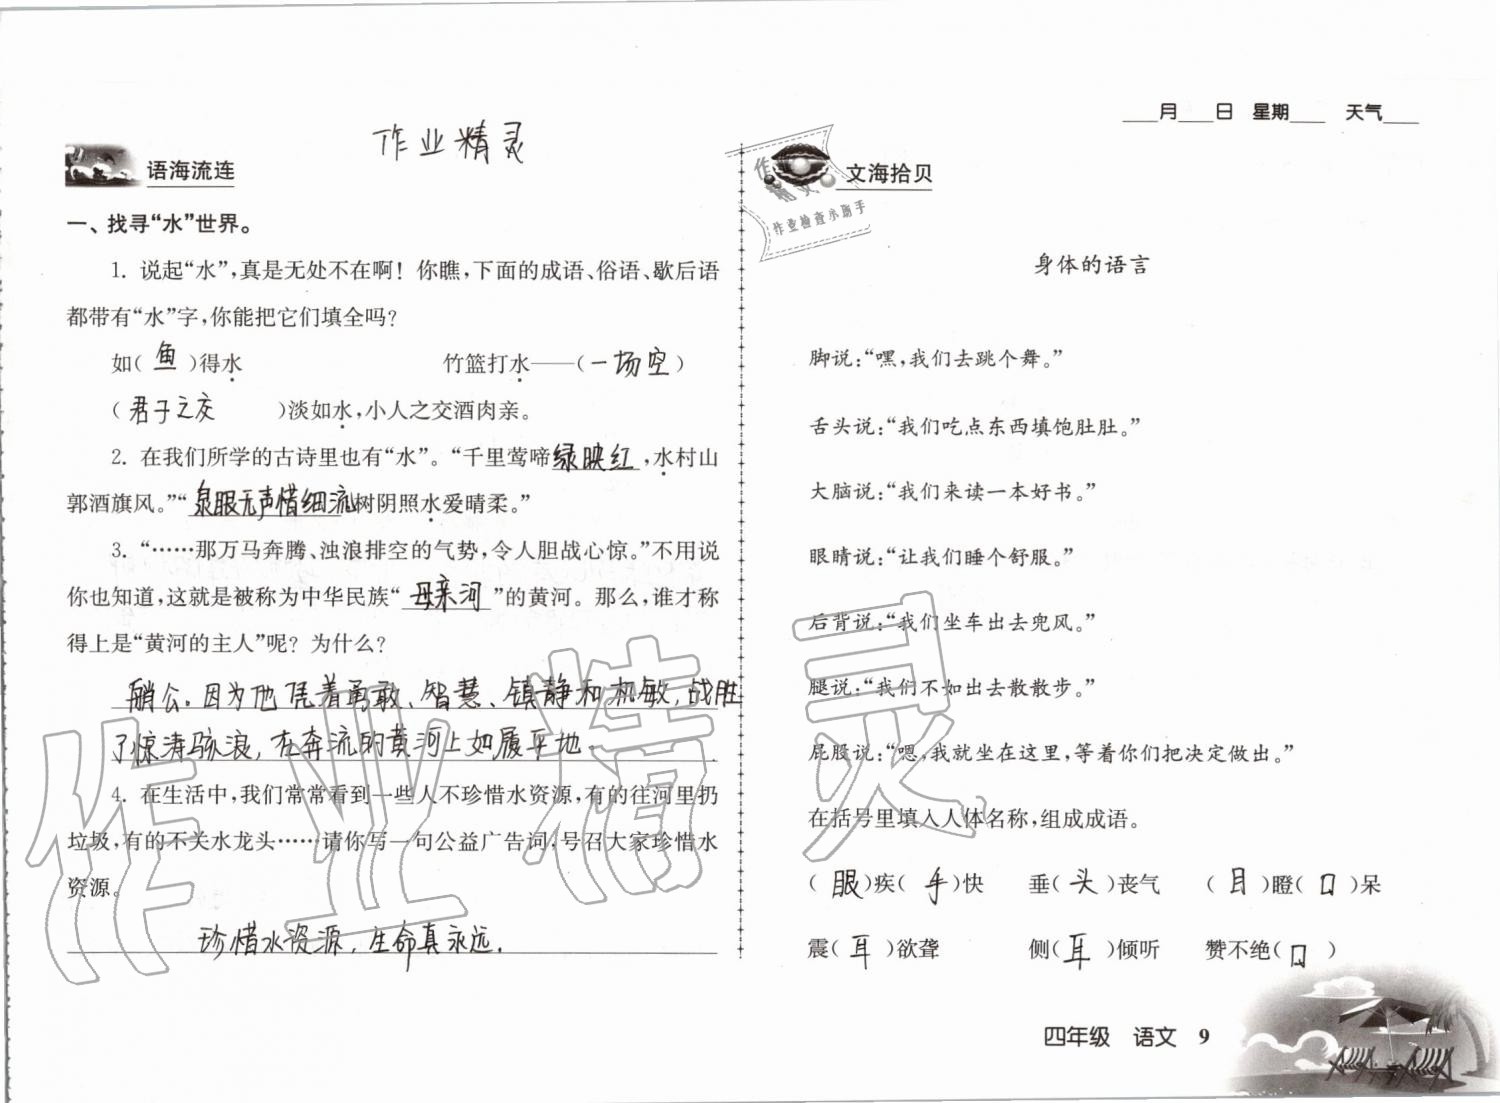 ____月____日 星期____ 天气____
作业精灵
语海流连
一、找寻“水”世界。
1. 说起“水”,真是无处不在啊! 你瞧,下面的成语、俗语、歇后语
都带有“水”字,你能把它们填全吗?
如( 鱼 )得水 竹篮打水——( 一场空 )
( 君子之交 )淡如水,小人之交酒肉亲。
2. 在我们所学的古诗里也有“水”。“千里莺啼绿映红,水村山
郭酒旗风。”“泉眼无声惜细流树阴照水爱晴柔。”
3. “……那万马奔腾、浊浪排空的气势,令人胆战心惊。”不用说
你也知道,这就是被称为中华民族“母亲河”的黄河。那么,谁才称
得上是“黄河的主人”呢? 为什么?
艄公。因为他凭着勇敢、智慧、镇静和机敏,战胜
了惊涛骇浪,在奔流的黄河上如履平地.
4. 在生活中,我们常常看到一些人不珍惜水资源,有的往河里扔
垃圾,有的不关水龙头……请你写一句公益广告词,号召大家珍惜水
资源。
珍惜水资源,生命真永远.
作业精灵
作业检查小助手
文海拾贝
身体的语言
脚说:“嘿,我们去跳个舞。”
舌头说:“我们吃点东西填饱肚肚。”
大脑说:“我们来读一本好书。”
眼睛说:“让我们睡个舒服。”
后背说:“我们坐车出去兜风。”
腿说:“我们不如出去散散步。”
屁股说:“嗯,我就坐在这里,等着你们把决定做出。”
在括号里填入人体名称,组成成语。
( 眼 )疾( 手 )快 垂( 头 )丧气 ( 目 )瞪( 口 )呆
震( 耳 )欲聋 侧( 耳 )倾听 赞不绝( 口 )
四年级 语文 9
作业精灵